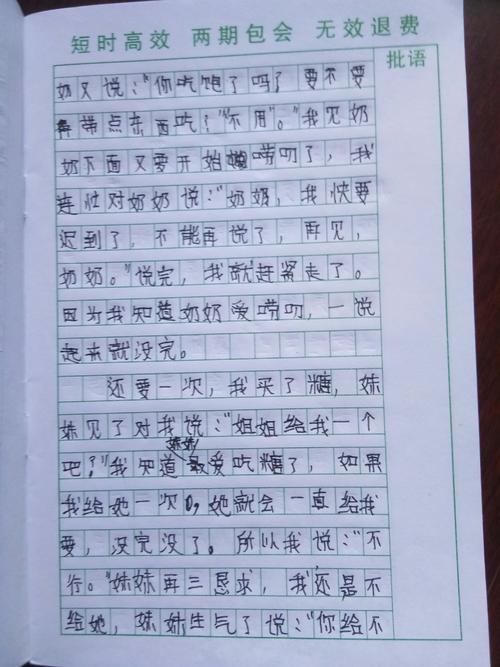 短时高效 两期包会 无效退费
批语
奶又说:"你吃饱了吗了要不要
带点东西吃?"不用"。"我见奶
奶下面又要开始唠叨了,我
连忙对奶奶说:"奶奶,我快要
迟到了,不能再说了,再见,
奶奶。"说完,我就赶紧走了。
因为我知道奶奶爱唠叨,一说
起来就没完。
还要一次,我买了糖,妹
妹见了对我说:"姐姐给我一个
吧?"我知道妹妹最爱吃糖了,如果
我给她一次,她就会一直给我
要,没完没了。所以我说:"不
行。"妹妹再三恳求,我还是不
给她,妹妹生气了说:"你给不